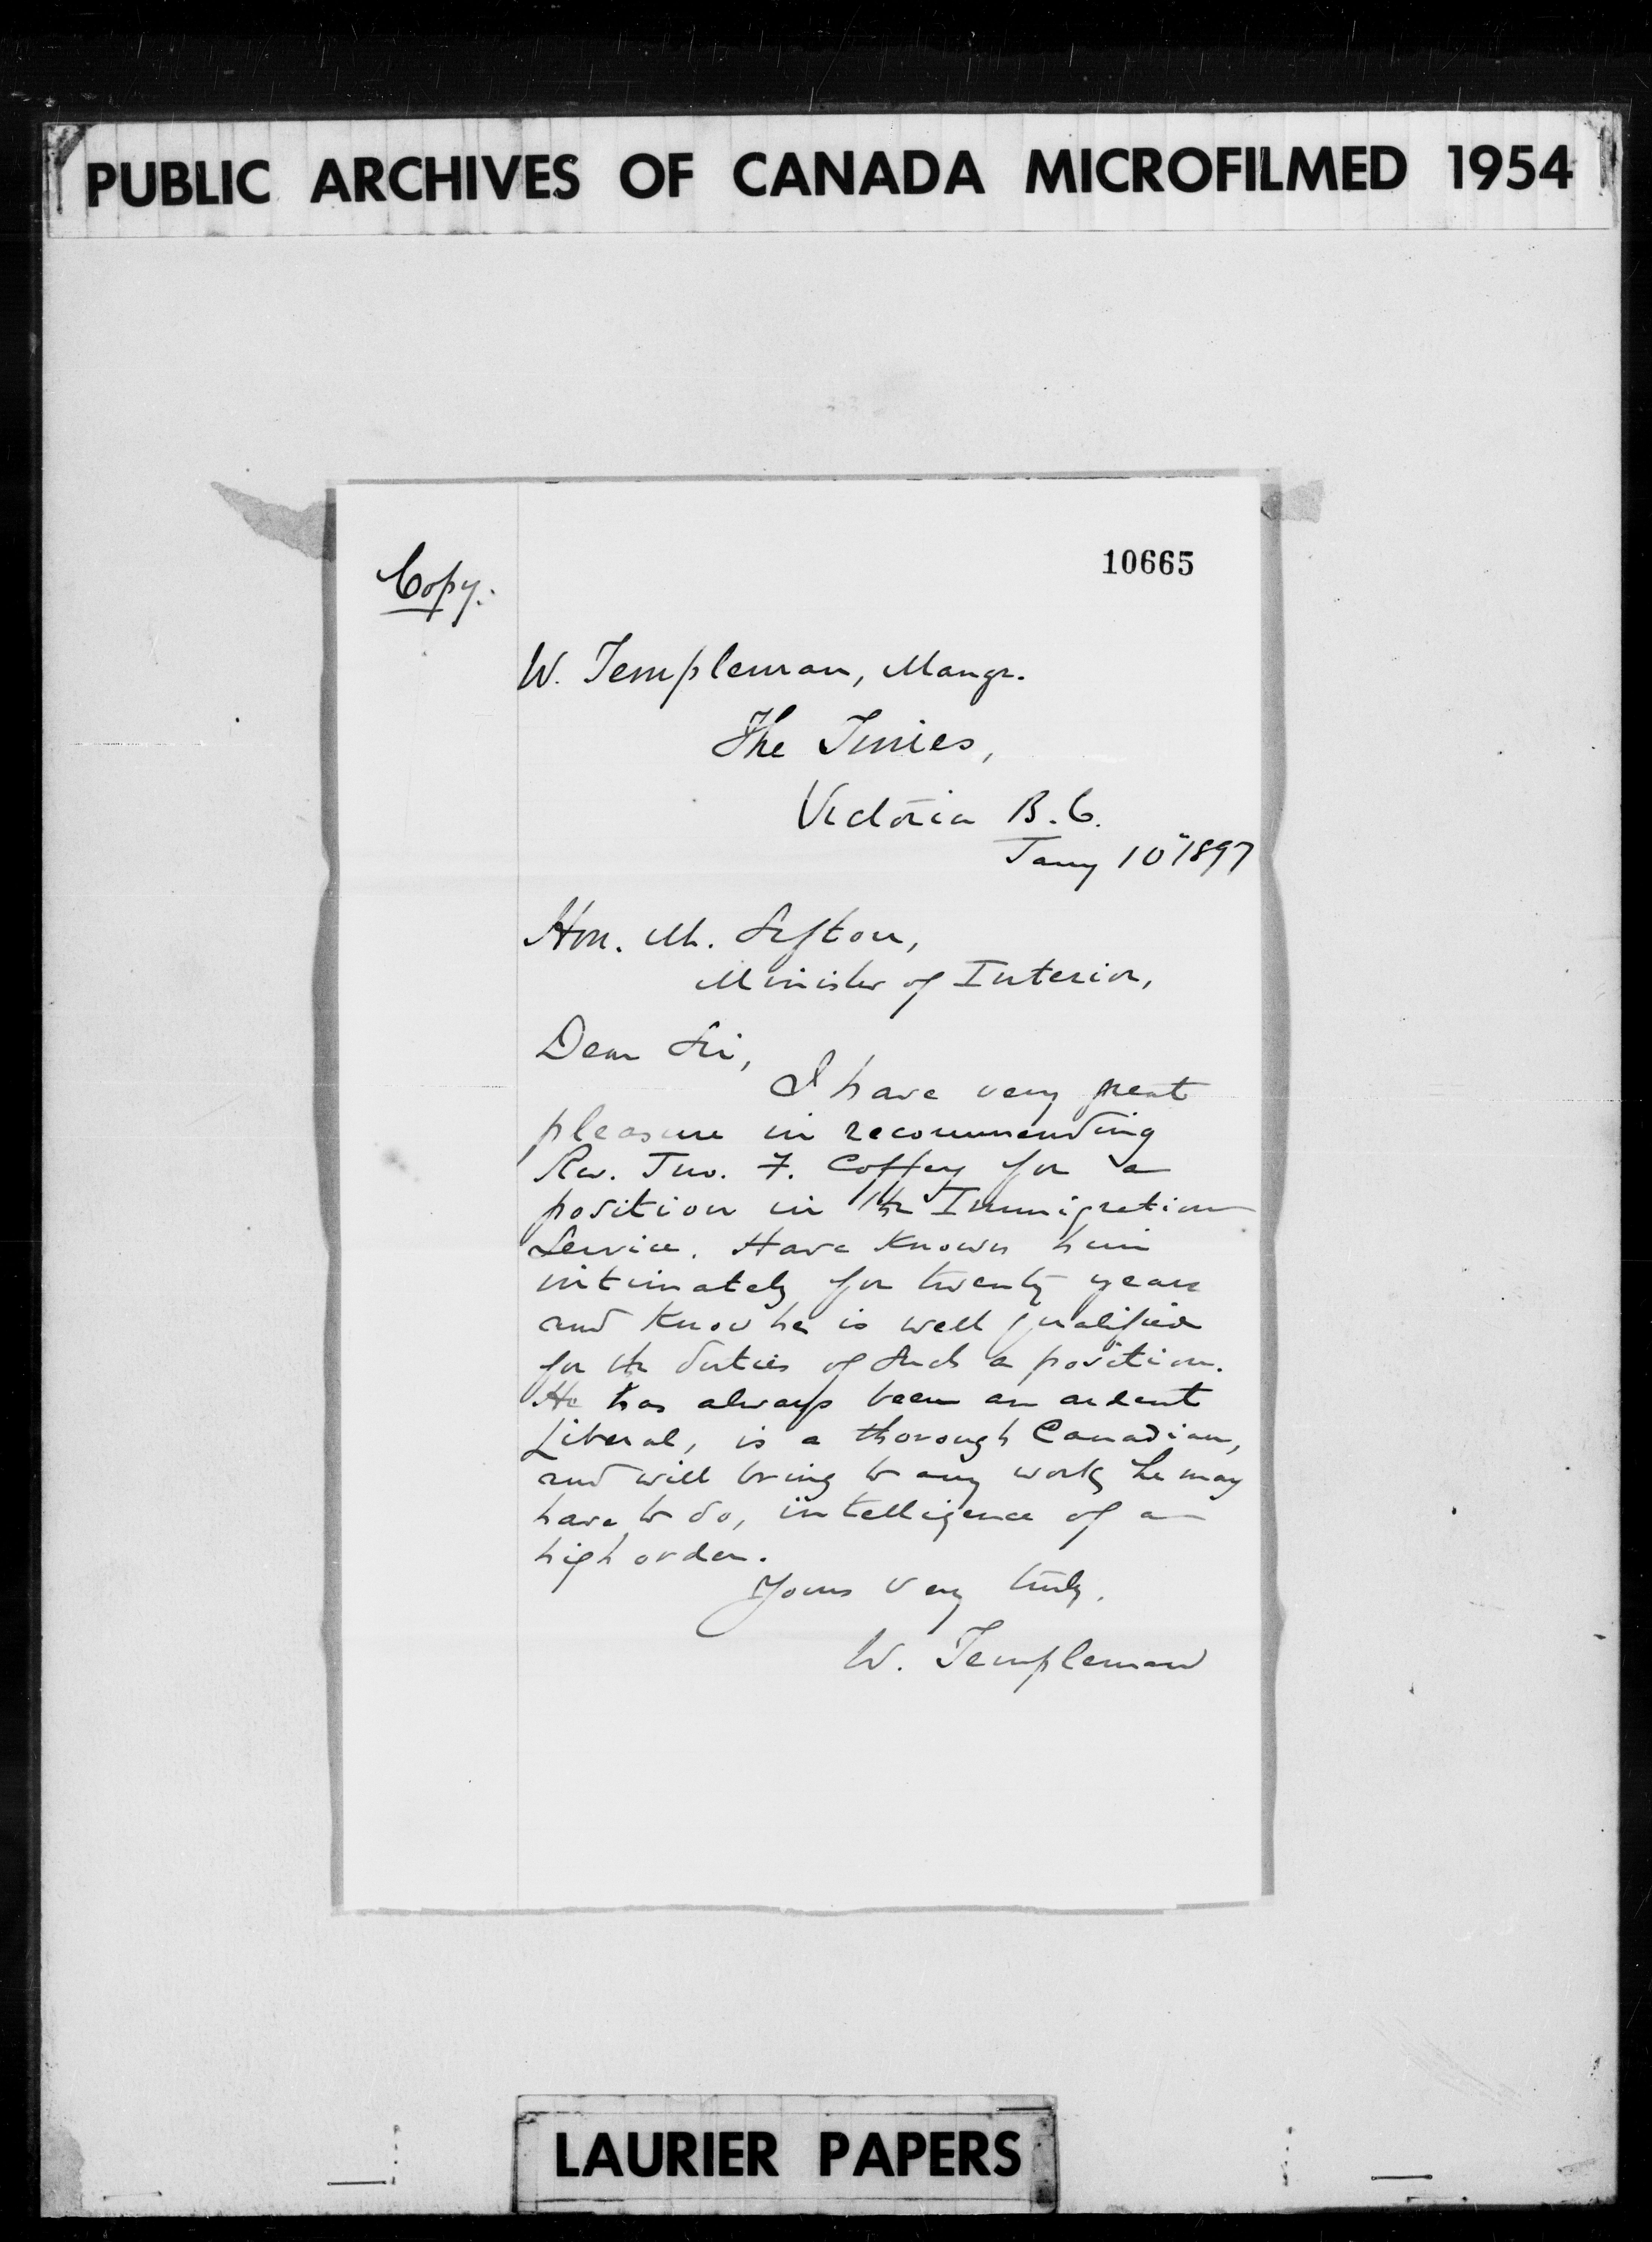 PUBLIC ARCHIVES OF CANADA MICROFILMED 1954
10665
Copy.
W. Templeman, Mangr.
The Times,
Victoria B.C.
Jany 10" 1897
Hon. Mr. Sifton,
Minister of Interior,
Dear Sir,
I have very great
pleasure in recommending
Rev. Jno. F. Coffey for a
position in the Immigration
Service. Have known him
intimately for twenty years
and know he is well qualified
for the duties of such a position.
He has always been an ardent
Liberal, is a thorough Canadian,
and will bring to any work he may
have to do, intelligence of a
high order.
Yours very truly,
W. Templeman
LAURIER PAPERS